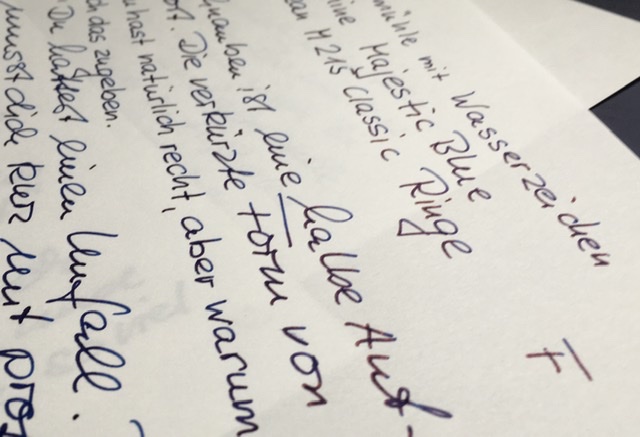 mühle mit Wasserzeichen
Majestic Blue
M 215 Classic Ringe
F
glauben ist eine halbe Ant-
. Die verkürzte Form von
hast natürlich recht, aber warum
das zugeben.
"Du hattest einen Unfall.
musst dich kurz mit